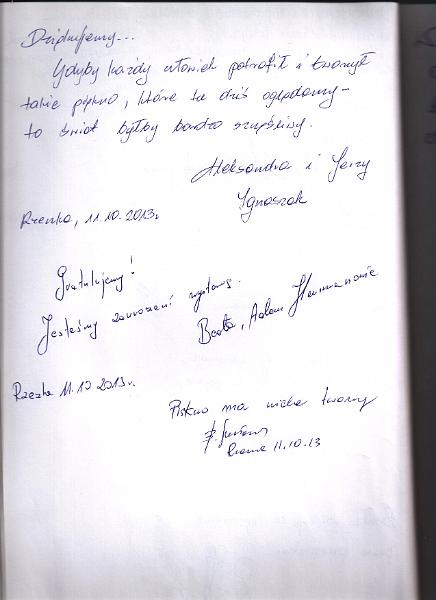 Dziękujemy...
Gdyby każdy człowiek potrafił i tworzył
takie piękno, które tu dziś oglądamy -
to świat byłby bardzo szczęśliwy.
Aleksandra i Jerzy
Ignaszak
Rzenka, 11.10.2013r
Gratulujemy!
Jesteśmy zauroczeni wystawą.
Beata, Adam
Rzezka 11.10 2013r.
Piękno ma wiele twarzy
11.10.13